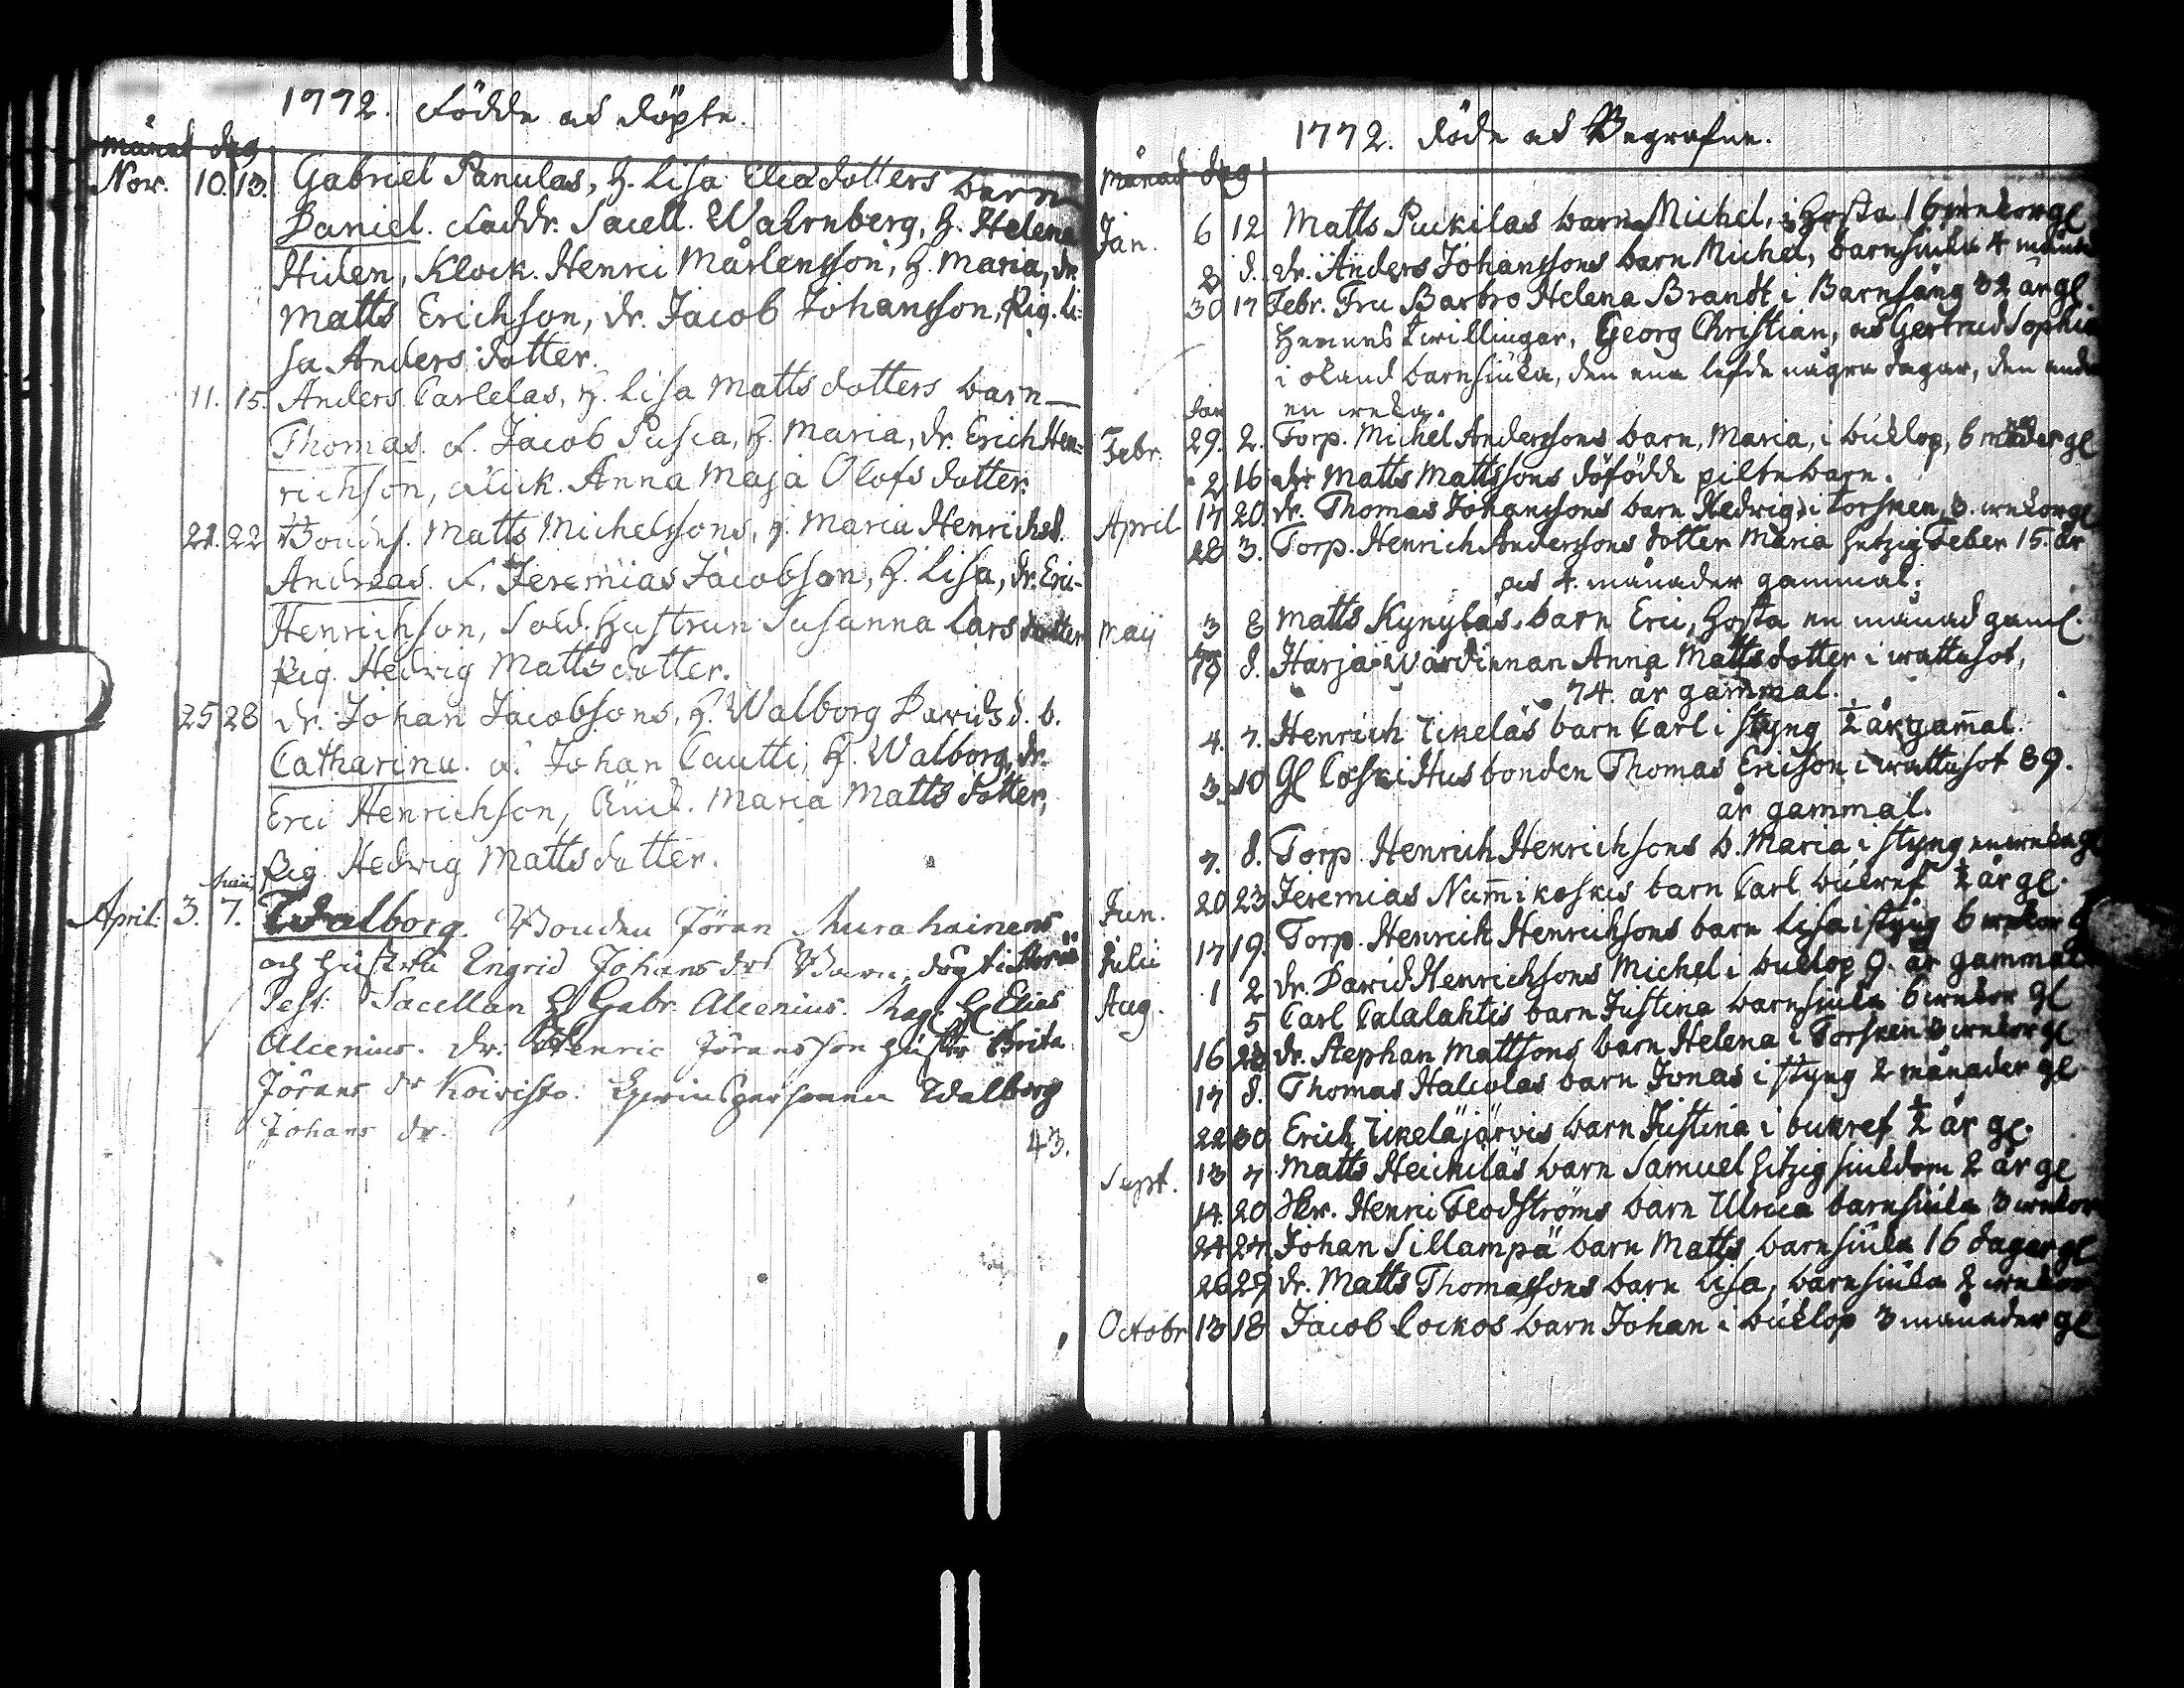 1772. Födde och döpte.
månad dag
Nov. 10. 13. Gabriel Panulas, H. Lisa Eliædotters barn
Daniel. Faddr. Sacell. Wahrnberg, H. Helena
Hiden, Klock. Henric Mårtensson, H. Maria, dr.
Matts Erichson, dr. Jacob Johansson, Pig. Li-
sa Anders dotter.
11. 15. Anders Carlelas, H. Lisa Matts dotters barn
Thomas. F. Jacob Pusca, H. Maria, dr. Erich Hen-
richson, Anna Maja Olofs dotter.
21. 22 Bondes. Matts Michelssons, H. Maria Henrichsd.
Andreas. F. Jeremias Jacobson, H. Lisa, dr. Eric
Henrichson, Sold. Hustrun Susanna Lars dotter
Pig. Hedvig Matts dotter.
25 28 dr. Johan Jacobsons, H. Walborg Davids d. b.
Catharina. F. Johan Cautti, H. Walborg, dr.
Eric Henrichson, Maria Matts dotter,
Pig. Hedvig Matts dotter.
April. 3. 7. Walborg. Bonden Jöran Murahainens
och hustru Engrid Johans dr Barn,
Test: Sacellan H Gabr. Alcenius. Mag. H Elias
Alcenius. Dr. Henric Jöransson hustr Brita
Jörans dr Koivisto. Walborg
Johans dr.
43.
1772. Döde och Begrafne.
månad dag
Jan. 6 12 Matts Puckilas barn Michel, i Hosta 16 wekor gl
8 d. dr. Anders Johanssons barn Michel, barnsiuka 4
30 17 Febr. Fru Barbro Helena Brandt i Barnsäng 32 år gl.
Hennes twillingar, Georg Christian, och Gertrud Sophia
i okänd barnsiuka, den ena lefde några dagar, den andra
en weka.
Jan
Febr. 29. 2. Torp. Michel Anderssons barn, Maria, i buklop, 6 gl
2 16 dr Matts Mattssons döfödde piltebarn.
April 17 20. dr. Thomas Johanssons barn Hedwig i torsken, 3. wekor gl
28 3. Torp. Henrich Anderssons dotter Maria hetzig Feber 15. år
och 4. månader gammal.
Maij 3 8 Matts Kynyläs barn Eric, Hosta en månad gaml.
19 d. Harja Wärdinnan Anna Matts dotter i wattusot,
74. år gammal.
4. 7. Henrich Tikeläs barn Carl i styng ½ år gam̄al.
3. 10 Gl Coski Husbonden Thomas Ericson i wattusot 89.
år gammal.
7. d. Torp. Henrich Henrichsons b. Maria i styng en weka gl
Jun. 20 23 Jeremias Num̄ikoskis barn Carl bukref ½ år gl.
Julii 17 19. Torp. Henrich Henrichsons barn Lisa i styng 6 wekor
Aug. 1 2 dr. David Henrichsons Michel i buklop 9. år gammal
5 Carl Calalahtis barn Justina barnsiuka 6 wekor gl
16 dr. Stephan Mattsons barn Helena i Torsken 3 wekor gl
17 d. Thomas Halcolas barn Jonas i styng 2 månader gl
22 30 Erich Tikeläjärvis barn Justina i bukref ½ år gl.
Sept. 13 7 Matts Heickiläs barn Samuel hitzig siukdom 2 år gl
14. 20 Henric Flodströms barn Ulrica barnsiuka 3 wekor
24 27 Johan Sillampä barn Matts barnsiuka 16 dagar gl
26 29 dr. Matts Thomassons barn Lisa, barnsiuka 2 wekor
Octobr 13 18 Jacob Cockos barn Johan i buklop 3 månader gl